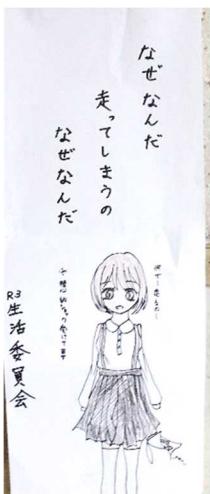 なぜなんだ
走ってしまうの
なぜなんだ
R3生活委員会